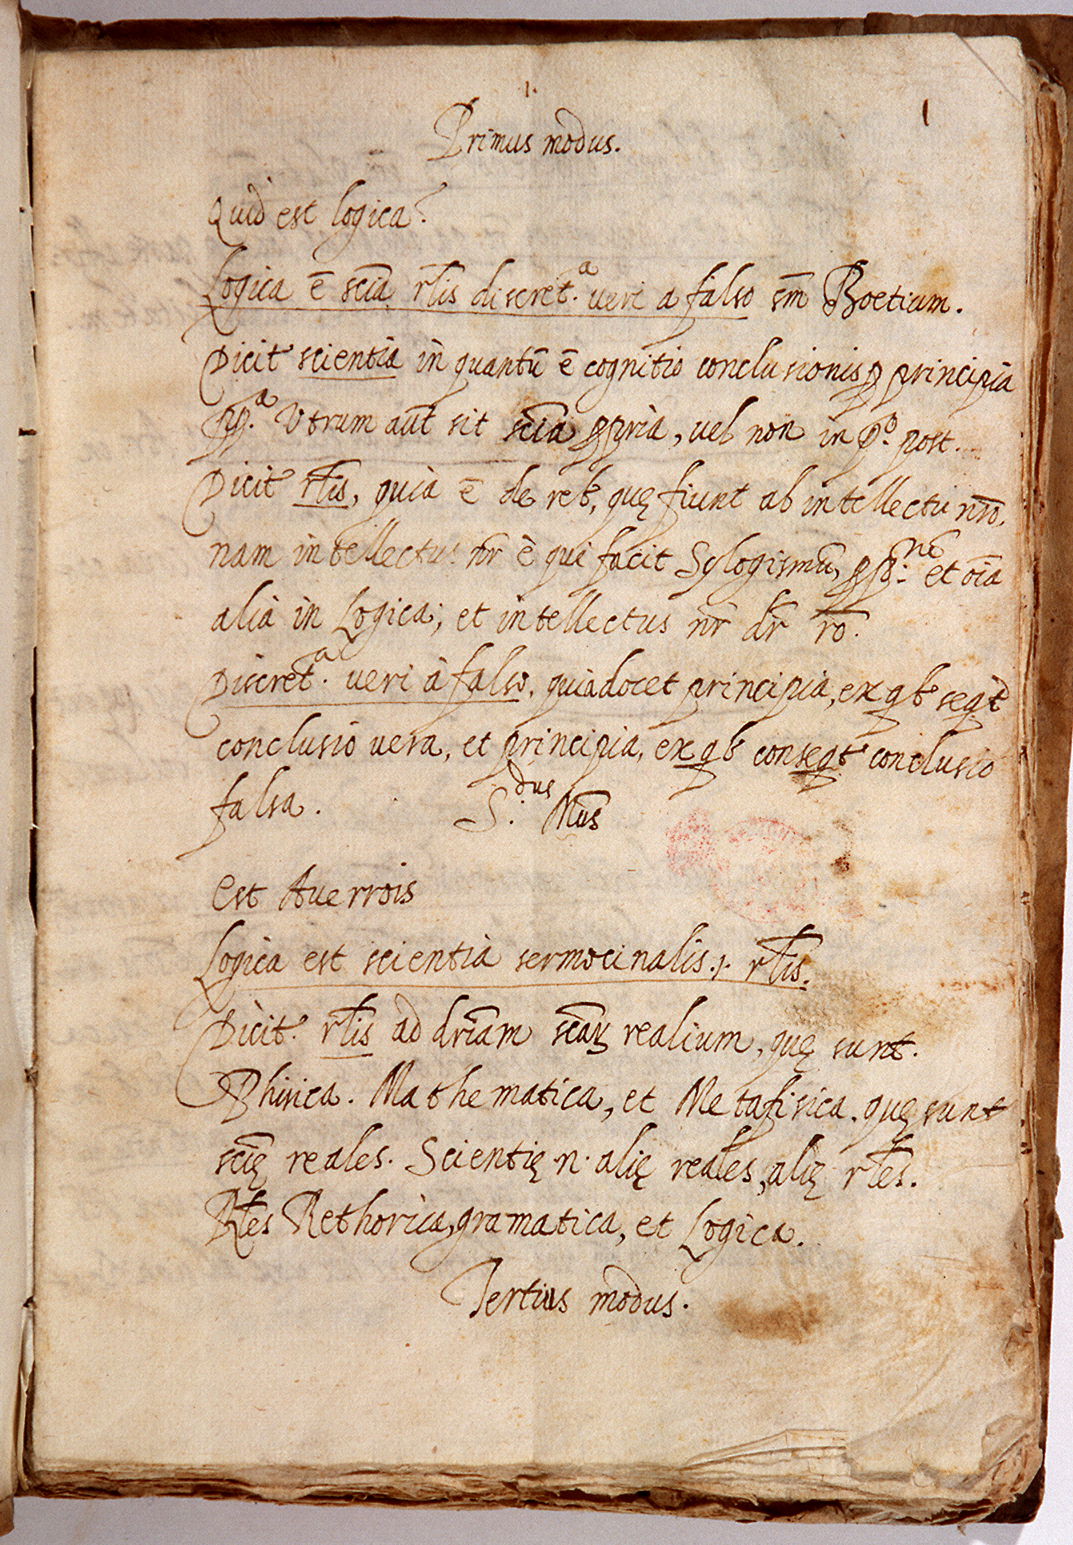 1.
1
Primus modus.
Quid est logica?
Logica ē scīa rłis discret.ᵃ veri a falso sm̄ Boetium.
Dicit scientia in quantū ē cognitio conclusionis ꝑ principia
pp.ᵃ Utrum aūt sit scīa ꝓpria, vel non in p.º post.
Dicit rłis, quia ē de reb, quę fiunt ab intellectu nr̄o,
nam intellectus nr̄ ē qui facit Sylogismū, et oīa
alia in Logica; et intellectus nr̄ dr̄ rō.
Discret.ᵃ veri à falso, quia docet principia, ex qb seqt̄
conclusio vera, et principia, ex qb conseqt̄ conclusio
falsa.
S.dus Mūs
Est Averrois
Logica est scientia sermocinalis .i. rłis.
Dicit rłis ad dr̄iam scīaꝝ realium, quę sunt.
Phisica. Mathematica, et Metafisica. quę sunt
scīę reales. Scientię .n. alię reales, alię rłes.
Rłes Rethorica, gramatica, et Logica.
Tertius modus.